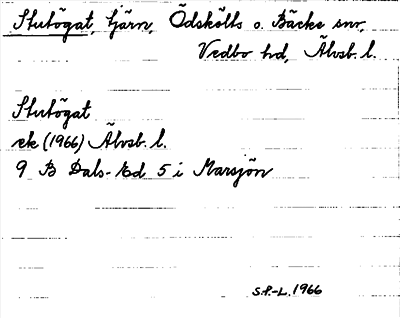 Stutögat, tjärn, Ödskölts o. Bäcke snr,
Vedbo hd, Älvsb. l.
Stutögat
ek (1966) Älvsb. l.
9 B Dals-Ed 5 i Marsjön
S.F.-L. 1966